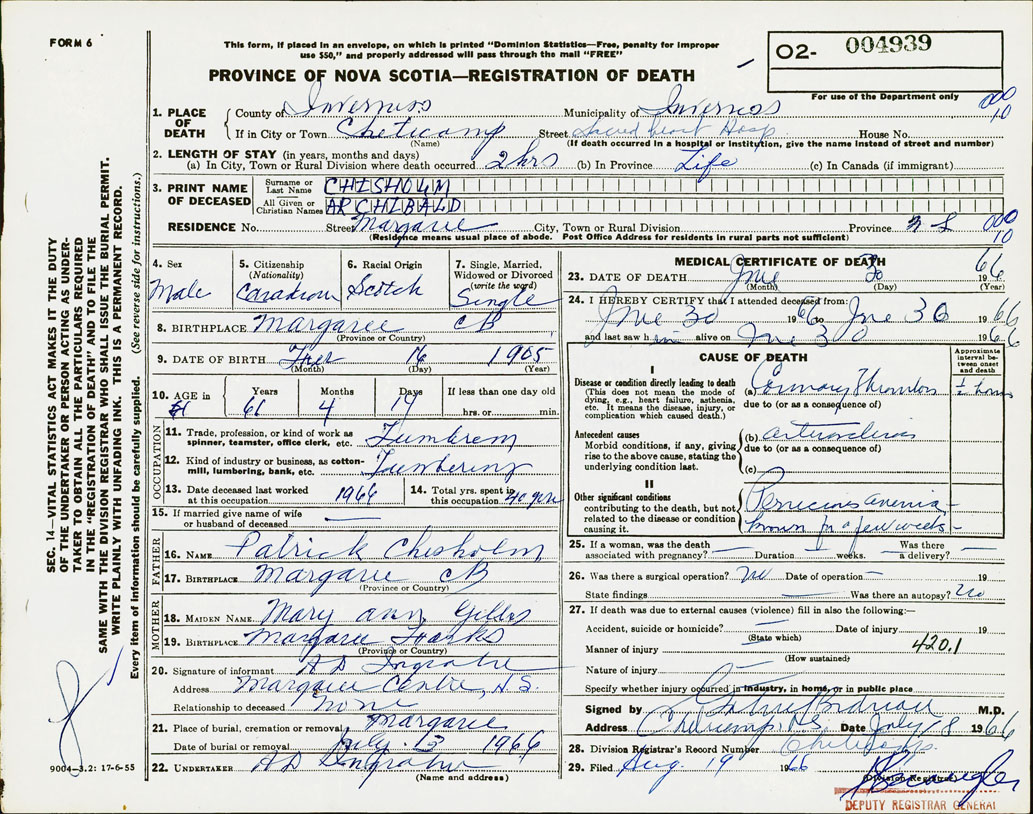 FORM 6
This form, if placed in an envelope, on which is printed "Dominion Statistics—Free, penalty for improper
use $50," and properly addressed will pass through the mail "FREE"
PROVINCE OF NOVA SCOTIA—REGISTRATION OF DEATH
O2- 004939
For use of the Department only
SEC. 14—VITAL STATISTICS ACT MAKES IT THE DUTY
OF THE UNDERTAKER OR PERSON ACTING AS UNDER-
TAKER TO OBTAIN ALL THE PARTICULARS REQUIRED
IN THE "REGISTRATION OF DEATH" AND TO FILE THE
SAME WITH THE DIVISION REGISTRAR WHO SHALL ISSUE THE BURIAL PERMIT.
WRITE PLAINLY WITH UNFADING INK. THIS IS A PERMANENT RECORD.
Every item of information should be carefully supplied. (See reverse side for instructions.)
1. PLACE OF DEATH
County of Inverness Municipality of Inverness 000 10
If in City or Town Cheticamp Street Sacred Heart Hosp House No.
(Name) (If death occurred in a hospital or institution, give the name instead of street and number)
2. LENGTH OF STAY (in years, months and days)
(a) In City, Town or Rural Division where death occurred 2 hrs (b) In Province Life (c) In Canada (if immigrant)
3. PRINT NAME OF DECEASED
Surname or Last Name CHISHOLM
All Given or Christian Names ARCHIBALD
RESIDENCE No. Street Margaree City, Town or Rural Division Province N S 000 10
(Residence means usual place of abode. Post Office Address for residents in rural parts not sufficient)
4. Sex Male
5. Citizenship (Nationality) Canadian
6. Racial Origin Scotch
7. Single, Married, Widowed or Divorced (write the word) Single
8. BIRTHPLACE Margaree CB
(Province or Country)
9. DATE OF BIRTH 16 1905
(Month) (Day) (Year)
10. AGE in Years 61 Months 4 Days 14 If less than one day old hrs. or min.
OCCUPATION
11. Trade, profession, or kind of work as spinner, teamster, office clerk, etc. Lumberman
12. Kind of industry or business, as cotton-mill, lumbering, bank, etc. Lumbering
13. Date deceased last worked at this occupation 1966
14. Total yrs. spent in this occupation 40 yrs
15. If married give name of wife or husband of deceased —
FATHER
16. NAME Patrick Chisholm
17. BIRTHPLACE Margaree CB
(Province or Country)
MOTHER
18. MAIDEN NAME Mary Ann Gillis
19. BIRTHPLACE Margaree Forks
(Province or Country)
20. Signature of informant AD Ingraham
Address Margaree Centre, N.S.
Relationship to deceased None
21. Place of burial, cremation or removal Margaree
Date of burial or removal July 1966
22. UNDERTAKER AD Ingraham
(Name and address)
9004-3.2: 17-6-55
MEDICAL CERTIFICATE OF DEATH
23. DATE OF DEATH June 30 66
(Month) (Day) (Year)
24. I HEREBY CERTIFY that I attended deceased from:
June 30 1966 to June 30 1966
and last saw him alive on June 30 1966
CAUSE OF DEATH
Approximate interval between onset and death
I
Disease or condition directly leading to death
(This does not mean the mode of dying, e.g., heart failure, asthenia, etc. It means the disease, injury, or complication which caused death.)
(a) Coronary Thrombosis ½ hour
due to (or as a consequence of)
Antecedent causes
Morbid conditions, if any, giving rise to the above cause, stating the underlying condition last.
(b)
due to (or as a consequence of)
(c)
II
Other significant conditions contributing to the death, but not related to the disease or condition causing it.
Pernicious anemia
known for a few weeks
25. If a woman, was the death associated with pregnancy? — Duration — weeks. Was there a delivery? —
26. Was there a surgical operation? no Date of operation — 19
State findings — Was there an autopsy? no
27. If death was due to external causes (violence) fill in also the following:—
Accident, suicide or homicide? — Date of injury 19
(State which)
Manner of injury 420.1
(How sustained)
Nature of injury —
Specify whether injury occurred in industry, in home, or in public place
Signed by M.D.
Address Cheticamp N.S. Date July 8 1966
28. Division Registrar's Record Number Cheticamp
29. Filed Aug. 19 1966
(Division Registrar)
DEPUTY REGISTRAR GENERAL